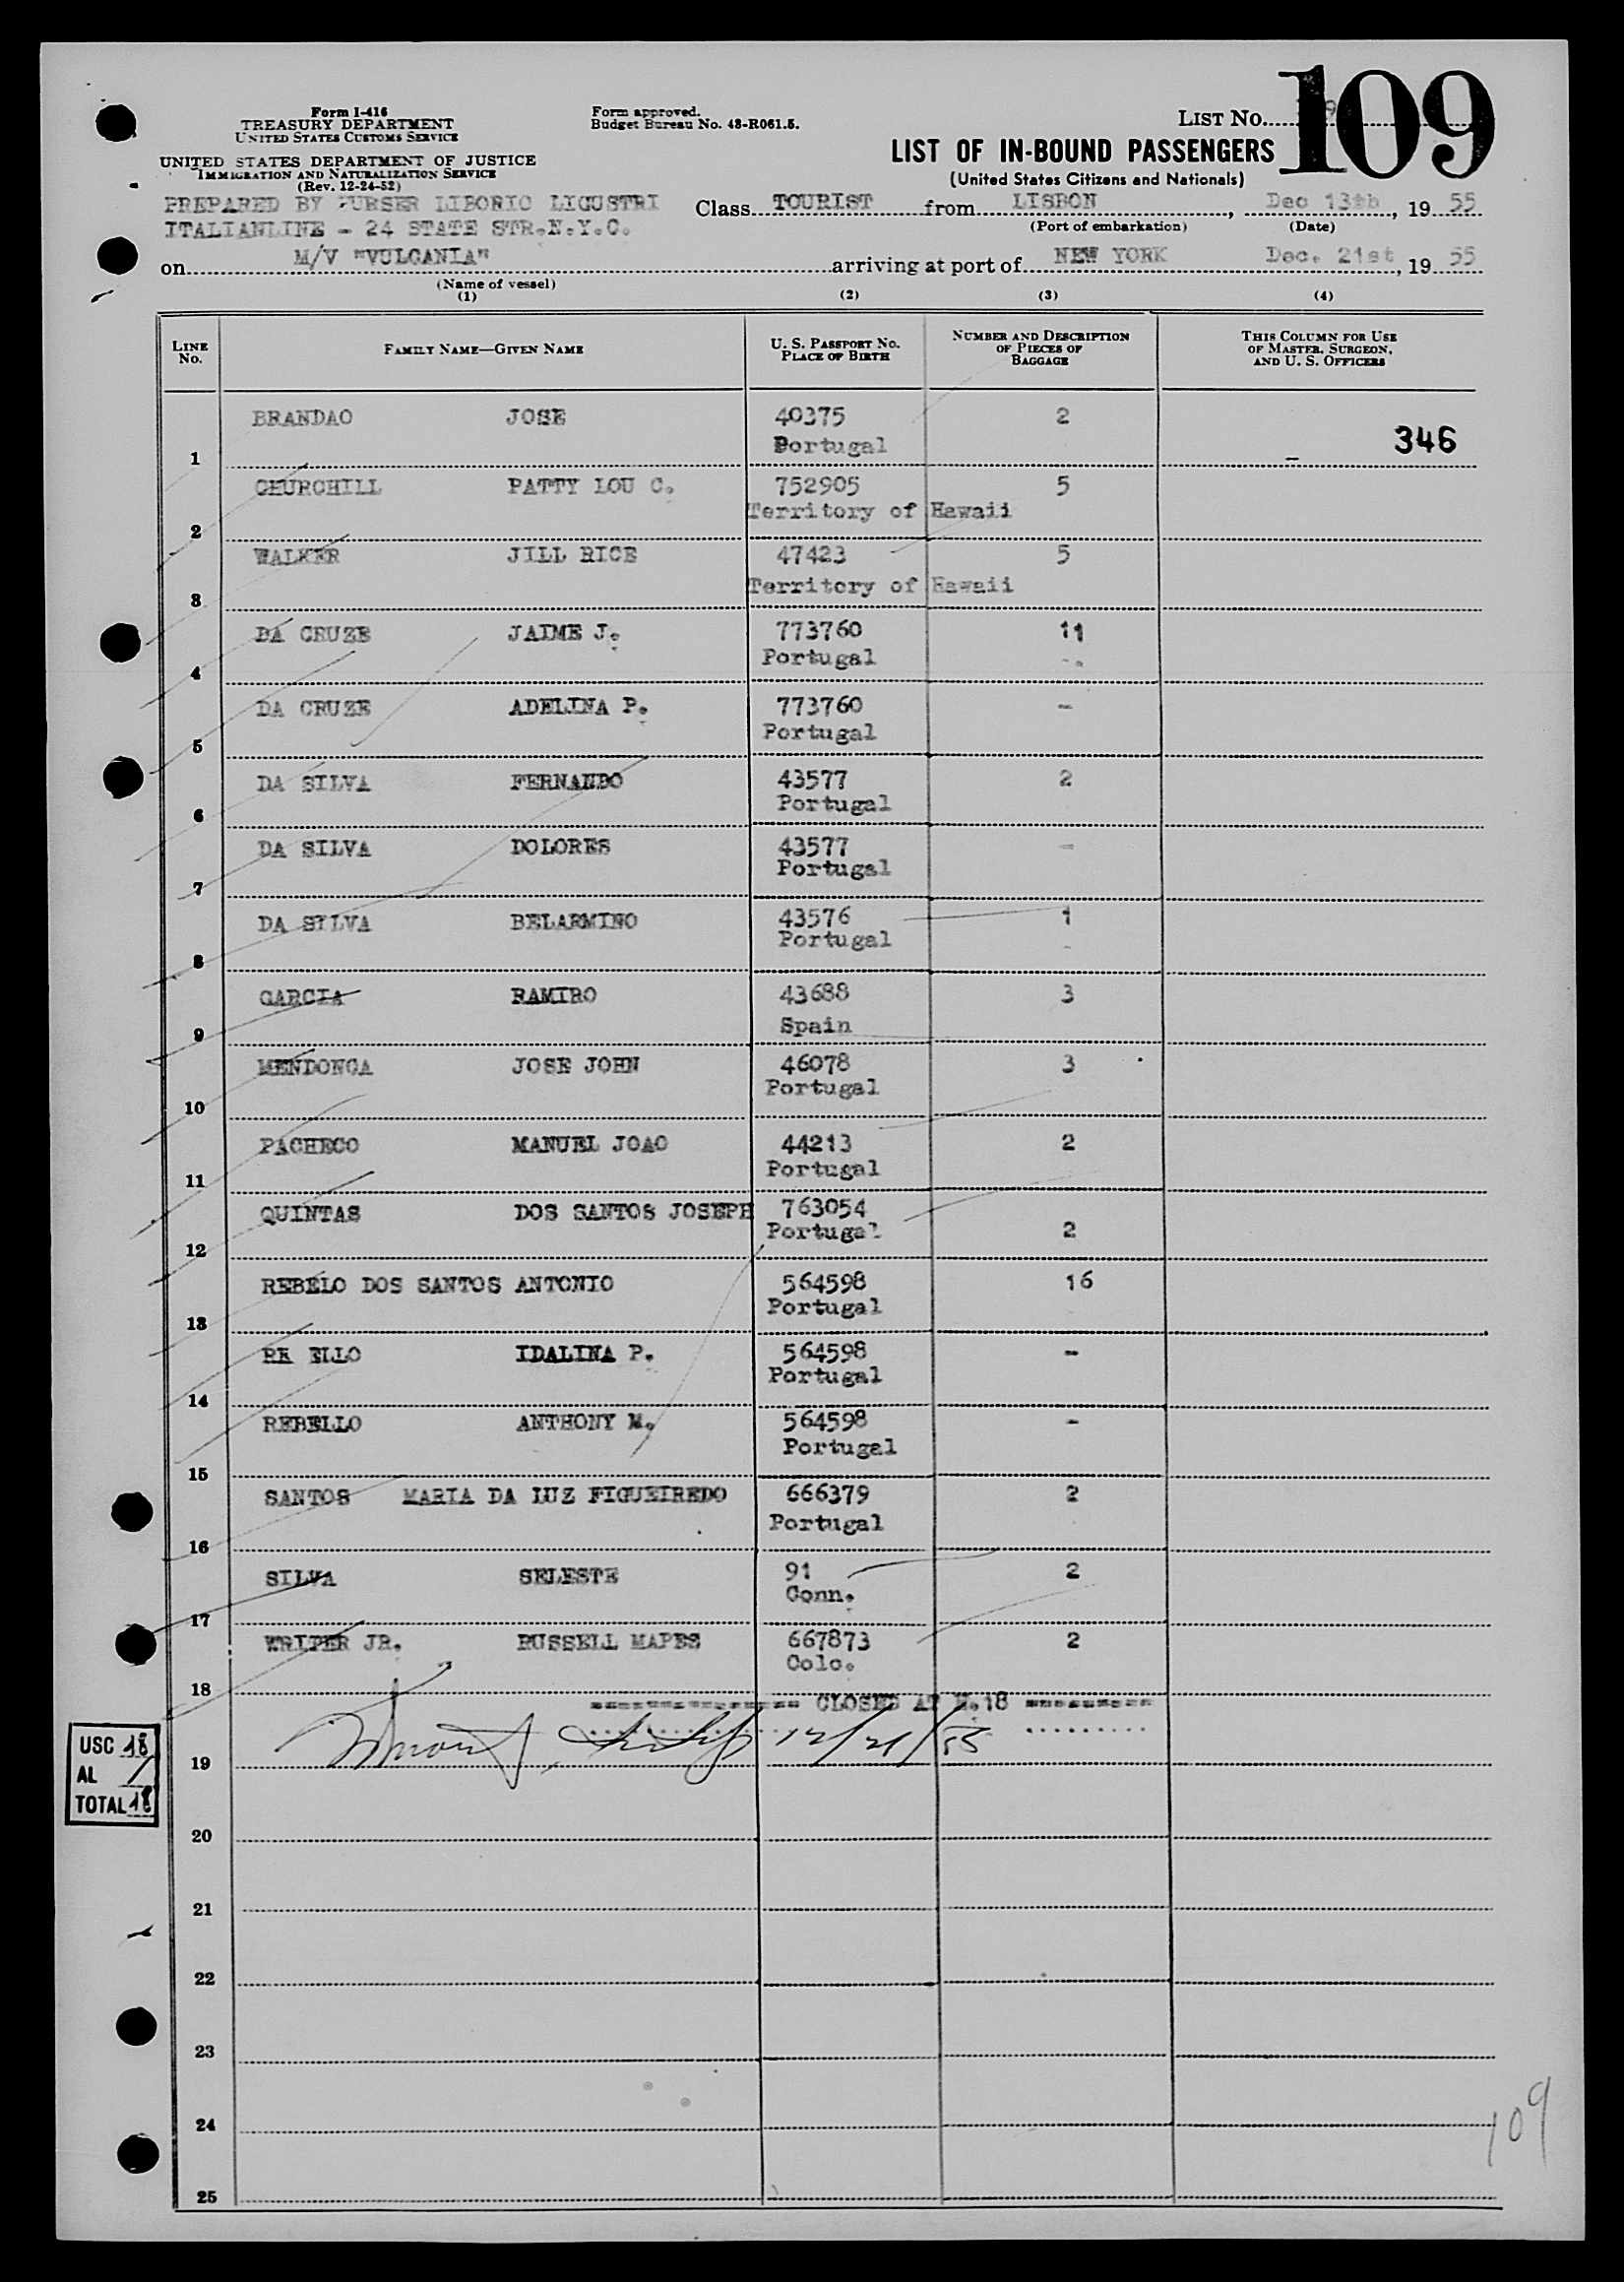 109
Form I-416
TREASURY DEPARTMENT
UNITED STATES CUSTOMS SERVICE
UNITED STATES DEPARTMENT OF JUSTICE
IMMIGRATION AND NATURALIZATION SERVICE
(Rev. 12-24-52)
Form approved.
Budget Bureau No. 43-R061.5.
LIST NO.
LIST OF IN-BOUND PASSENGERS
(United States Citizens and Nationals)
PREPARED BY PURSER LIBORIO LIGUSTRI
ITALIANLINE - 24 STATE STR.N.Y.C.
Class TOURIST from LISBON, Dec 13th, 1955
(Port of embarkation) (Date)
on M/V "VULCANIA" arriving at port of NEW YORK Dec. 21st, 1955
(Name of vessel)
(1) (2) (3) (4)
LINE No. FAMILY NAME—GIVEN NAME U. S. PASSPORT NO. PLACE OF BIRTH NUMBER AND DESCRIPTION OF PIECES OF BAGGAGE THIS COLUMN FOR USE OF MASTER, SURGEON, AND U. S. OFFICERS
BRANDAO JOSE 40375 2
1 Portugal 346
CHURCHILL PATTY LOU C. 752905 5
2 Territory of Hawaii
WALKER JILL RICE 47423 5
3 Territory of Hawaii
DA CRUZE JAIME J. 773760 11
4 Portugal
DA CRUZE ADELINA P. 773760 -
5 Portugal
DA SILVA FERNANDO 43577 2
6 Portugal
DA SILVA DOLORES 43577 -
7 Portugal
DA SILVA BELARMINO 43576 1
8 Portugal
GARCIA RAMIRO 43688 3
9 Spain
MENDONCA JOSE JOHN 46078 3
10 Portugal
PACHECO MANUEL JOAO 44213 2
11 Portugal
QUINTAS DOS SANTOS JOSEPH 763054
12 Portugal 2
REBELO DOS SANTOS ANTONIO 564598 16
13 Portugal
RE ELLO IDALINA P. 564598 -
14 Portugal
REBELLO ANTHONY M. 564598 -
15 Portugal
SANTOS MARIA DA LUZ FIGUEIREDO 666379 2
16 Portugal
SILVA SELESTE 91 2
17 Conn.
WRITER JR. RUSSELL MAPES 667873 2
18 Colo.
CLOSED AT N.18
12/21/55
USC 18
AL /
TOTAL 18
19
20
21
22
23
24
25
109